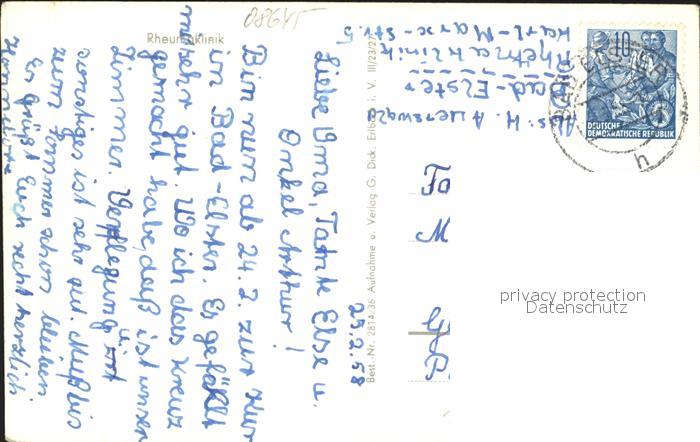 08645
Rheumaklinik
Abs: H. Auerswald
Bad-Elster
Rheumaklinik
Karl-Marx-Str. 5
10
DEUTSCHE
DEMOKRATISCHE REPUBLIK
25.2.58
Liebe Oma, Tante Else u.
Onkel Arthur!
Bin nun ab 24.2. zur Kur
in Bad-Elster. Es gefällt
mir sehr gut. Wo ich das Kreuz
gemacht habe, daß ist unser
Zimmer. Verpflegung u.
sonstiges ist sehr gut. Muß bis
zum Sommer schon bleiben
Es grüßt Euch recht herzlich
Best.-Nr. 2814/36 Aufnahme u. Verlag G. Dick, Erlbach i. V. III/23/27
privacy protection
Datenschutz